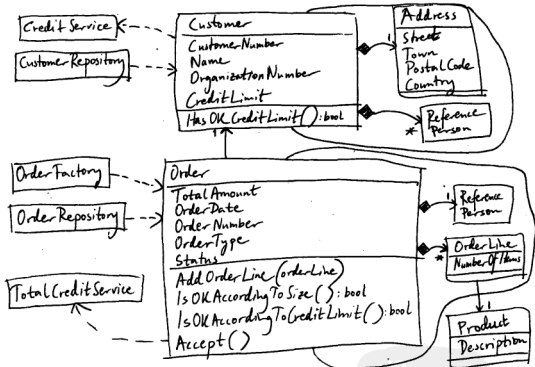 Credit Service
Customer Repository
Customer
CustomerNumber
Name
OrganizationNumber
CreditLimit
HasOKCreditLimit():bool
1
Address
Street
Town
PostalCode
Country
*
Reference
Person
1
Order Factory
Order Repository
TotalCreditService
Order
TotalAmount
OrderDate
OrderNumber
OrderType
Status
AddOrderLine(orderLine)
IsOKAccordingToSize():bool
IsOKAccordingToCreditLimit():bool
Accept()
1
Reference
Person
*
OrderLine
NumberOfItems
1
Product
Description